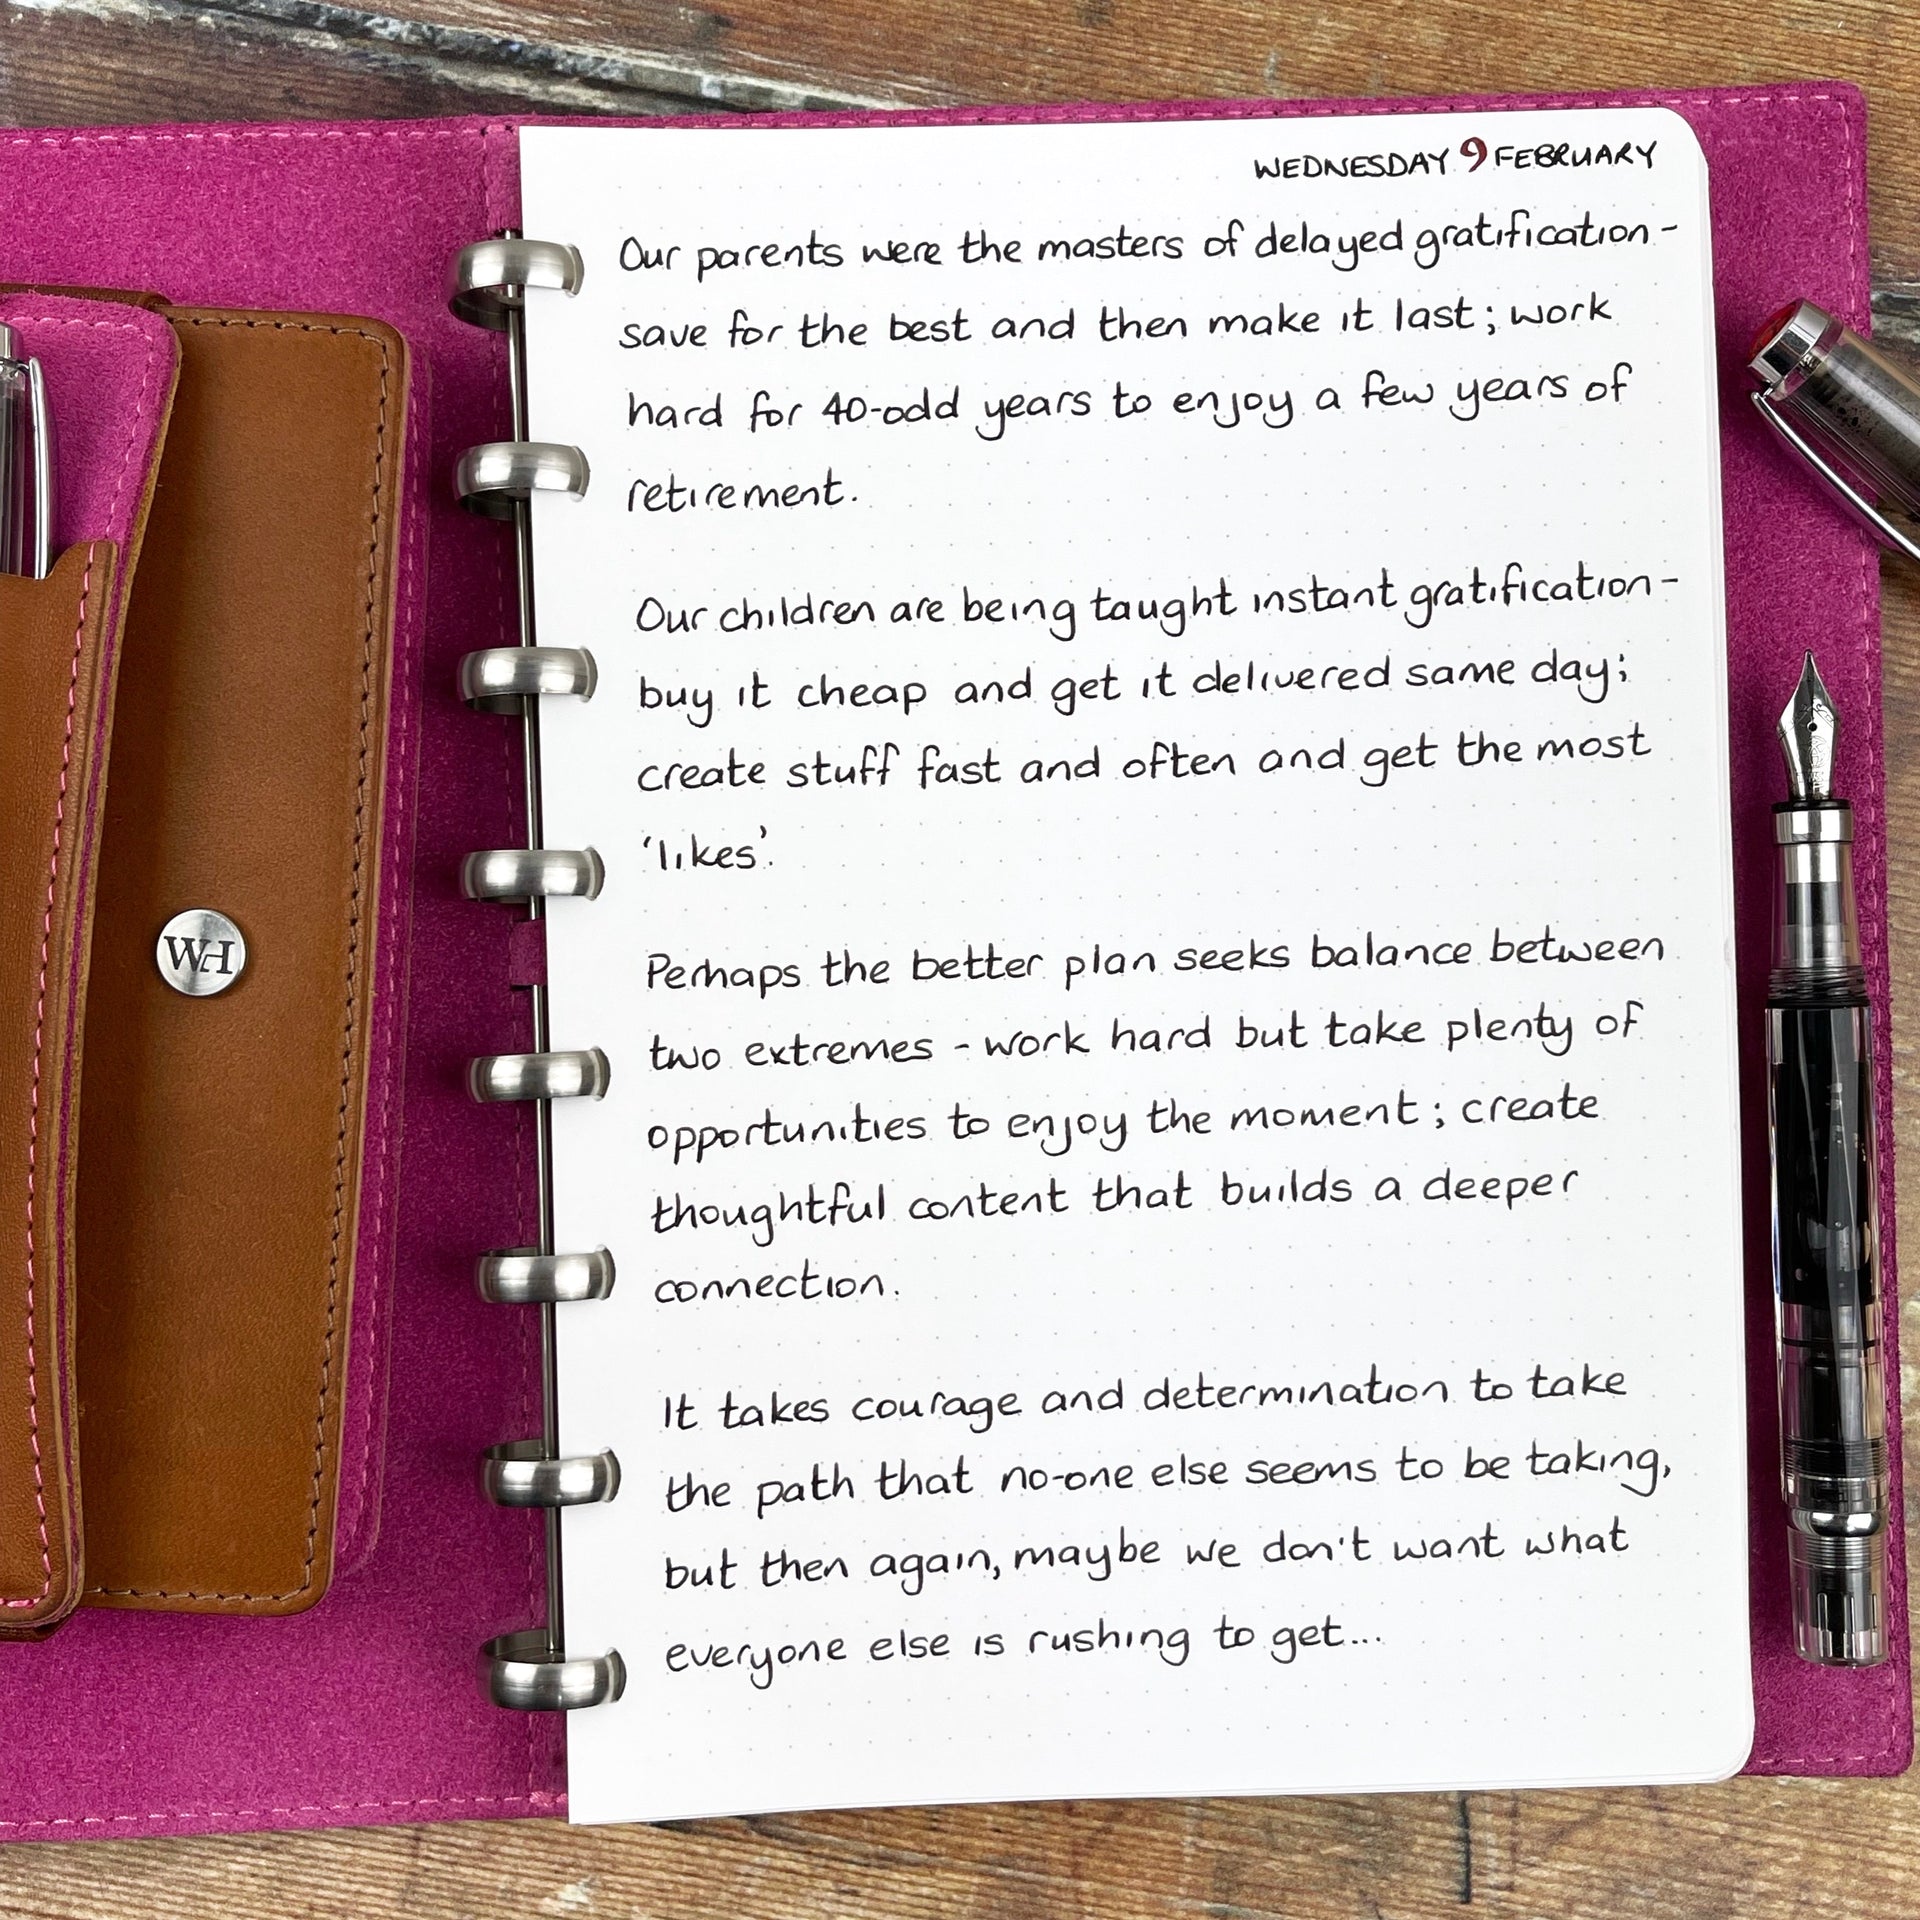 WEDNESDAY 9 FEBRUARY
Our parents were the masters of delayed gratification -
save for the best and then make it last; work
hard for 40-odd years to enjoy a few years of
retirement.
Our children are being taught instant gratification -
buy it cheap and get it delivered same day;
create stuff fast and often and get the most
'likes'.
Perhaps the better plan seeks balance between
two extremes - work hard but take plenty of
opportunities to enjoy the moment; create
thoughtful content that builds a deeper
connection.
It takes courage and determination to take
the path that no-one else seems to be taking,
but then again, maybe we don't want what
everyone else is rushing to get...
WH